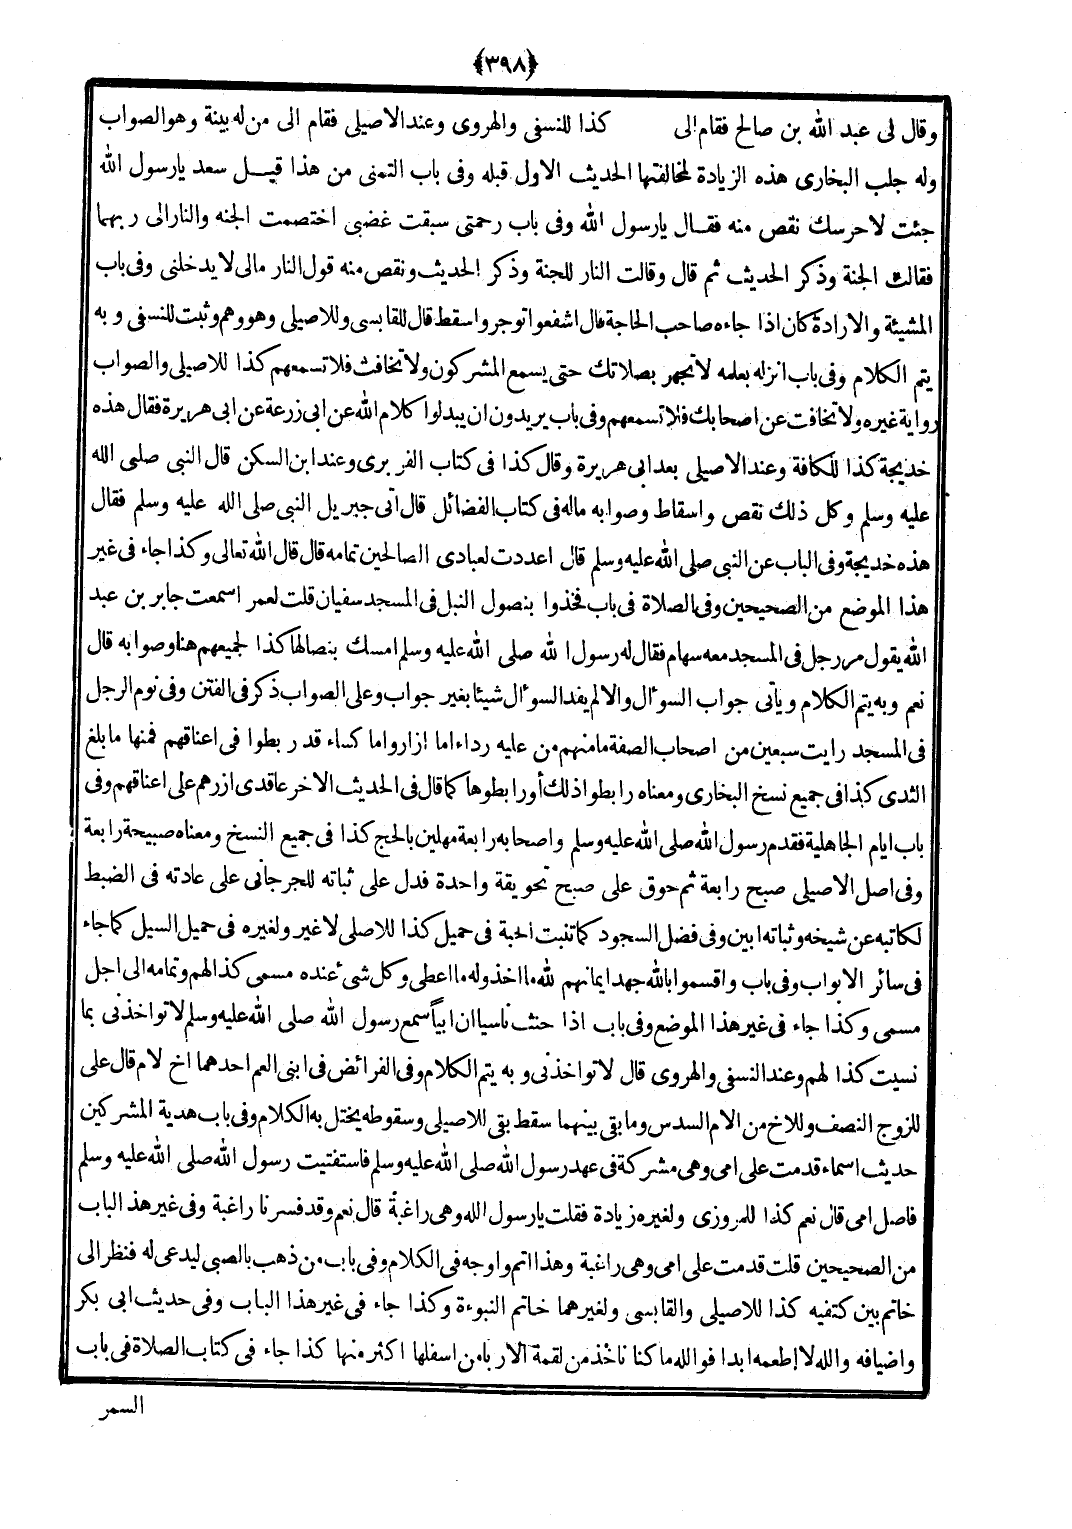 ﴿٣٩٨﴾
وقال لى عبد الله بن صالح فقام الى كذا للنسفى والهروى وعند الاصيلى فقام الى من له بينة وهو الصواب
وله جلب البخارى هذه الزيادة لمخالفتها الحديث الاول قبله وفى باب التمنى من هذا قيل سعد يارسول الله
جئت لاحرسك نقص منه فقال يارسول الله وفى باب رحمتى سبقت غضبى اختصمت الجنه والنار الى ربهما
فقالت الجنة وذكر الحديث ثم قال وقالت النار للجنة وذكر الحديث ونقص منه قول النار مالى لا يدخلنى وفى باب
المشيئة والارادة كان اذا جاءه صاحب الحاجة قال اشفعوا توجروا سقط قال للقابسى وللاصيلى وهو وهم وثبت للنسفى و به
يتم الكلام وفى باب انزله بعلمه لا تجهر بصلاتك حتى يسمع المشركون ولا تخافت فلا تسمعهم كذا للاصيلى والصواب
رواية غيره ولا تخافت عن اصحابك فلا تسمعهم وفى باب يريدون ان يبدلوا كلام الله عن ابى زرعة عن ابى هريرة فقال هذه
خديجة كذا للكافة وعند الاصيلى بعد ابى هريرة وقال كذا فى كتاب الفربرى وعند ابن السكن قال النبى صلى الله
عليه وسلم وكل ذلك نقص واسقاط وصوابه ماله فى كتاب الفضائل قال اتى جبريل النبى صلى الله عليه وسلم فقال
هذه خديجة وفى الباب عن النبى صلى الله عليه وسلم قال اعددت لعبادى الصالحين تمامه قال قال الله تعالى وكذا جاء فى غير
هذا الموضع من الصحيحين وفى الصلاة فى باب فخذوا بنصول النبل فى المسجد سفيان قلت لعمر اسمعت جابر بن عبد
الله يقول مر رجل فى المسجد معه سهام فقال له رسول الله صلى الله عليه وسلم امسك بنصالها كذا لجميعهم هنا وصوابه قال
نعم وبه يتم الكلام وياتى جواب السوأل والا لم يفد السوأل شيئا بغير جواب وعلى الصواب ذكر فى الفتن وفى نوم الرجل
فى المسجد رايت سبعين من اصحاب الصفة مامنهم من عليه رداء اما ازار واما كساء قد ربطوا فى اعناقهم فمنها مابلغ
الثدى كذا فى جميع نسخ البخارى ومعناه رابطوا ذلك أو رابطوها كما قال فى الحديث الاخر عاقدى ازرهم على اعناقهم وفى
باب ايام الجاهلية فقدم رسول الله صلى الله عليه وسلم واصحابه رابعة مهلين بالحج كذا فى جميع النسخ ومعناه صبيحة رابعة
وفى اصل الاصيلى صبح رابعة ثم حوق على صبح تحويقة واحدة فدل على ثباته للجرجانى على عادته فى الضبط
لكاتبه عن شيخه وثباته ابين وفى فضل السجود كما تنبت الحبة فى حميل كذا للاصلى لا غير ولغيره فى حميل السيل كما جاء
فى سائر الابواب وفى باب واقسموا بالله جهد ايمانهم لله ما اخذ وله ما اعطى وكل شىء عنده مسمى كذا لهم وتمامه الى اجل
مسمى وكذا جاء فى غير هذا الموضع وفى باب اذا حنث ناسيا ان ابياً سمع رسول الله صلى الله عليه وسلم لا تواخذنى بما
نسيت كذا لهم وعند النسفى والهروى قال لا تواخذنى و به يتم الكلام وفى الفرائض فى ابنى العم احدهما اخ لام قال على
للزوج النصف وللاخ من الام السدس وما بقى بينهما سقط بقى للاصيلى وسقوطه يختل به الكلام وفى باب هدية المشركين
حديث اسماء قدمت على امى وهى مشركة فى عهد رسول الله صلى الله عليه وسلم فاستفتيت رسول الله صلى الله عليه وسلم
فاصل امى قال نعم كذا للمروزى ولغيره زيادة فقلت يارسول الله وهى راغبة قال نعم وقد فسرنا راغبة وفى غير هذ الباب
من الصحيحين قلت قدمت على امى وهى راغبة وهذا اتم واوجه فى الكلام وفى باب من ذهب بالصبى ليدعى له فنظر الى
خاتم بين كتفيه كذا للاصيلى والقابسى ولغيرهما خاتم النبوءة وكذا جاء فى غير هذا الباب وفى حديث ابى بكر
واضيافه والله لا اطعمه ابدا فوالله ما كنا ناخذ من لقمة الا ربا من اسفلها اكثر منها كذا جاء فى كتاب الصلاة فى باب
السمر